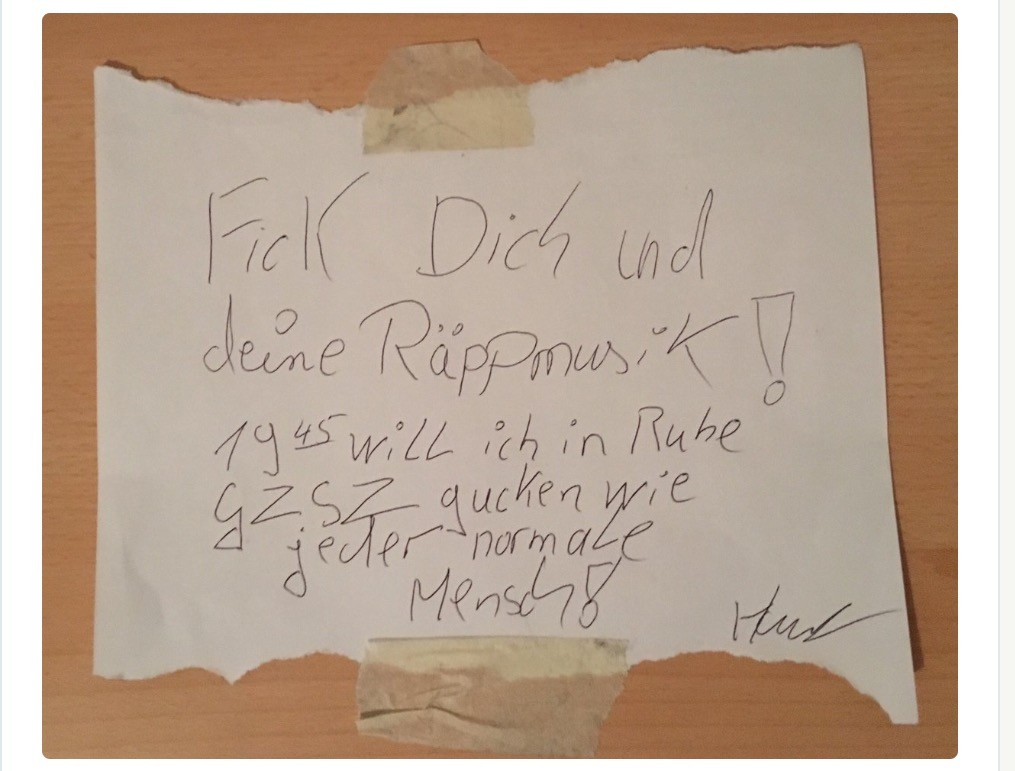 Fick Dich und
deine Räppmusik!
19 45 will ich in Ruhe
GZSZ gucken wie
jeder normale
Mensch!